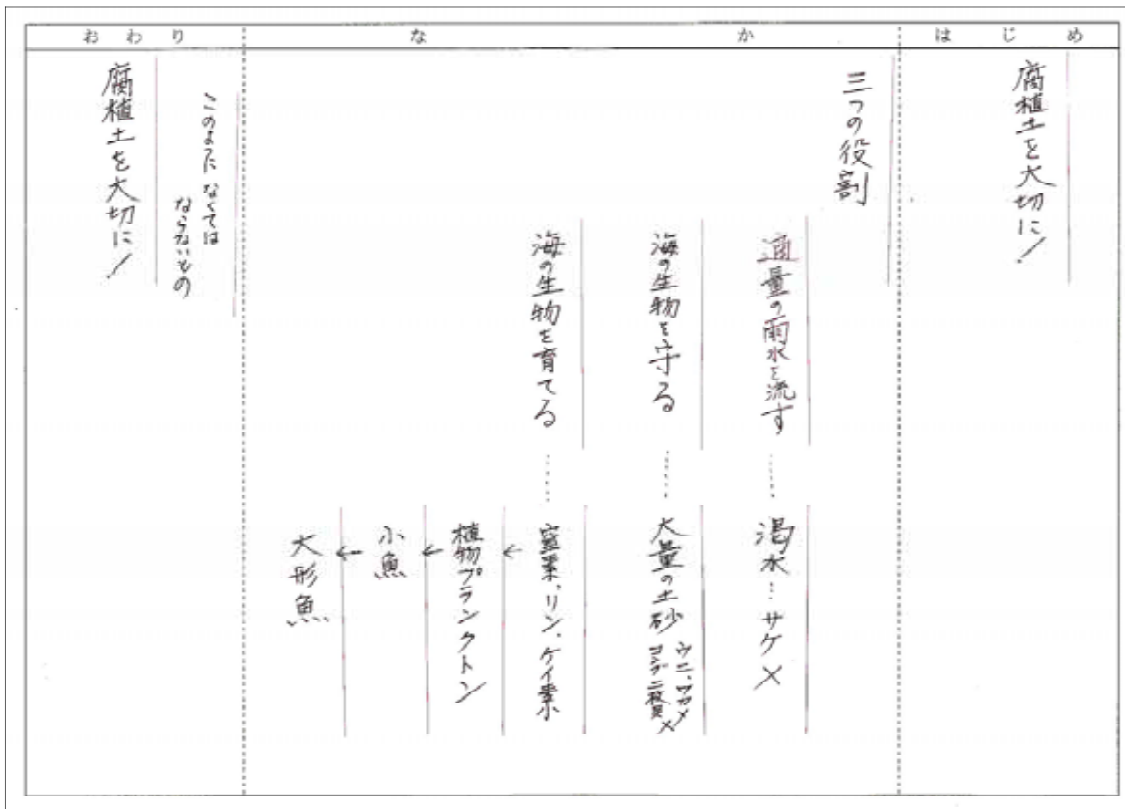 はじめ
なか
おわり
腐植土を大切に！
三つの役割
適量の雨水を流す
……
渇水…サケ×
海の生物を守る
……
大量の土砂
ウニ、ワカメ
コンブ 二枚貝×
海の生物を育てる
……
窒素、リン、ケイ素
←
植物プランクトン
←
小魚
←
大形魚
このように なくては
ならないもの
腐植土を大切に！